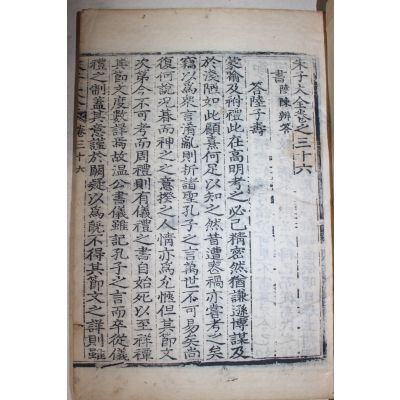 朱子大全卷之三十六
書 陸陳辨答
答陸子壽
蒙喻及祔禮此在高明考之必已精密然猶謙遜博謀及
於淺陋如此顧熹何足以知之然昔遭喪禍亦嘗考之矣
竊以爲衆言淆亂則折諸聖孔子之言萬世不可易矣尚
復何說況期而神之之意揆之人情亦爲允愜但其節文
次第今不可考而周禮則有儀禮之書自始死以至祥禫
其節文度數詳焉故温公書儀雖記孔子之言而卒從儀
禮之制蓋其意謹於闕疑以爲旣不得其節文之詳則雖
卷三十六